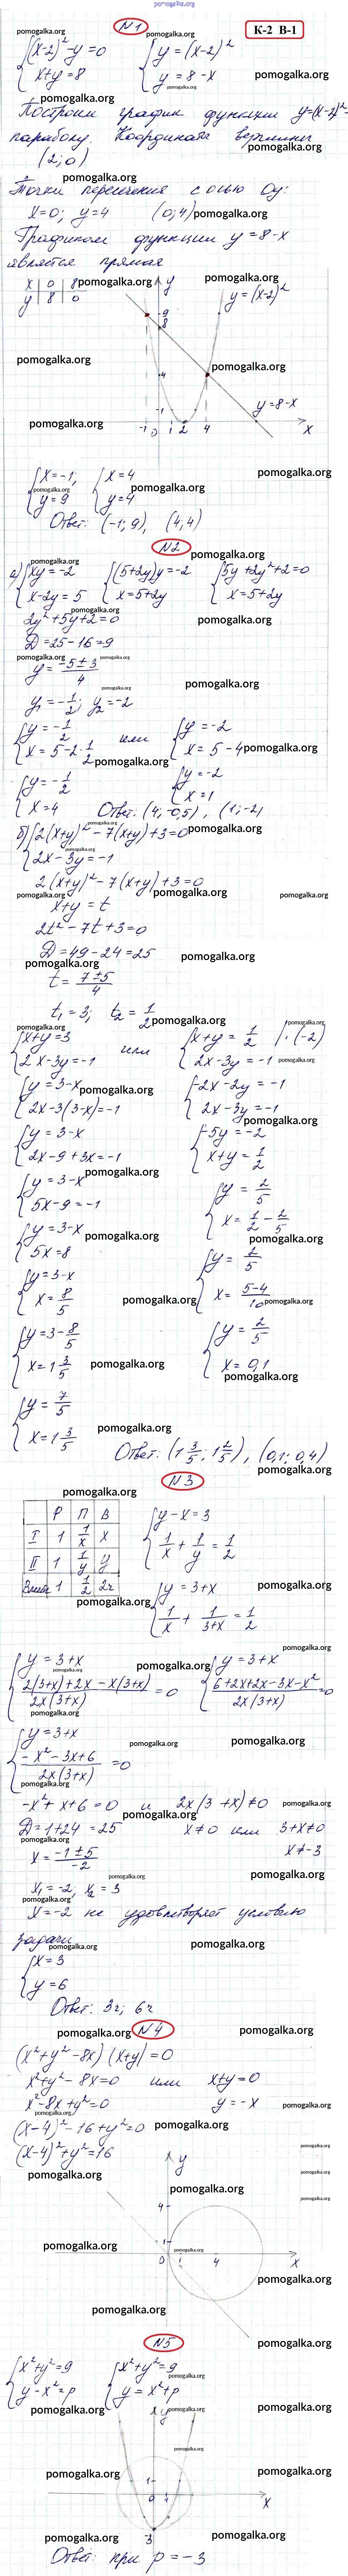 pomogalka.org
№1
К-2 В-1
{(x-2)²-y=0
x+y=8
{y=(x-2)²
y=8-x
Построим график функции y=(x-2)²-
параболу. Координаты вершины
(2;0)
Точки пересечения с осью Oy:
x=0; y=4 (0;4)
Графиком функции y=8-x
является прямая
x | 0 | 8
y | 8 | 0
y
y=(x-2)²
9
8
4
1
y=8-x
-1 0 1 2 4 x
{x=-1;
y=9
{x=4
y=4
Ответ: (-1;9), (4;4)
№2
а) {xy=-2
x-2y=5
{(5+2y)y=-2
x=5+2y
{5y+2y²+2=0
x=5+2y
2y²+5y+2=0
D=25-16=9
y=(-5±3)/4
y₁=-1/2; y₂=-2
{y=-1/2
x=5-2·1/2
или
{y=-2
x=5-4
{y=-1/2
x=4
{y=-2
x=1
Ответ: (4;-0,5), (1;-2)
б) {2(x+y)²-7(x+y)+3=0
2x-3y=-1
2(x+y)²-7(x+y)+3=0
x+y=t
2t²-7t+3=0
D=49-24=25
t=(7±5)/4
t₁=3; t₂=1/2
{x+y=3
2x-3y=-1
или
{x+y=1/2 |·(-2)
2x-3y=-1
{y=3-x
2x-3(3-x)=-1
{-2x-2y=-1
2x-3y=-1
{y=3-x
2x-9+3x=-1
{-5y=-2
x+y=1/2
{y=3-x
5x-9=-1
{y=2/5
x=1/2-2/5
{y=3-x
5x=8
{y=2/5
x=(5-4)/10
{y=3-x
x=8/5
{y=2/5
x=0,1
{y=3-8/5
x=1 3/5
{y=7/5
x=1 3/5
Ответ: (1 3/5; 1 2/5), (0,1; 0,4)
№3
Р | П | В
I | 1 | 1/x | x
II | 1 | 1/y | y
Вместе | 1 | 1/2 | 2ч
{y-x=3
1/x+1/y=1/2
{y=3+x
1/x+1/(3+x)=1/2
{y=3+x
(2(3+x)+2x-x(3+x))/(2x(3+x))=0
{y=3+x
(6+2x+2x-3x-x²)/(2x(3+x))=0
{y=3+x
(-x²-3x+6)/(2x(3+x))=0
-x²+x+6=0 и 2x(3+x)≠0
D=1+24=25 x≠0 или 3+x≠0
x=(-1±5)/-2 x≠-3
x₁=-2, x₂=3
x=-2 не удовлетворяет условию
задачи
{x=3
y=6
Ответ: 3ч; 6ч
№4
(x²+y²-8x)(x+y)=0
x²+y²-8x=0 или x+y=0
x²-8x+y²=0 y=-x
(x-4)²-16+y²=0
(x-4)²+y²=16
y
4
1
0 1 4 x
№5
{x²+y²=9
y-x²=p
{x²+y²=9
y=x²+p
y
1
0 1 x
-3
Ответ: при p=-3